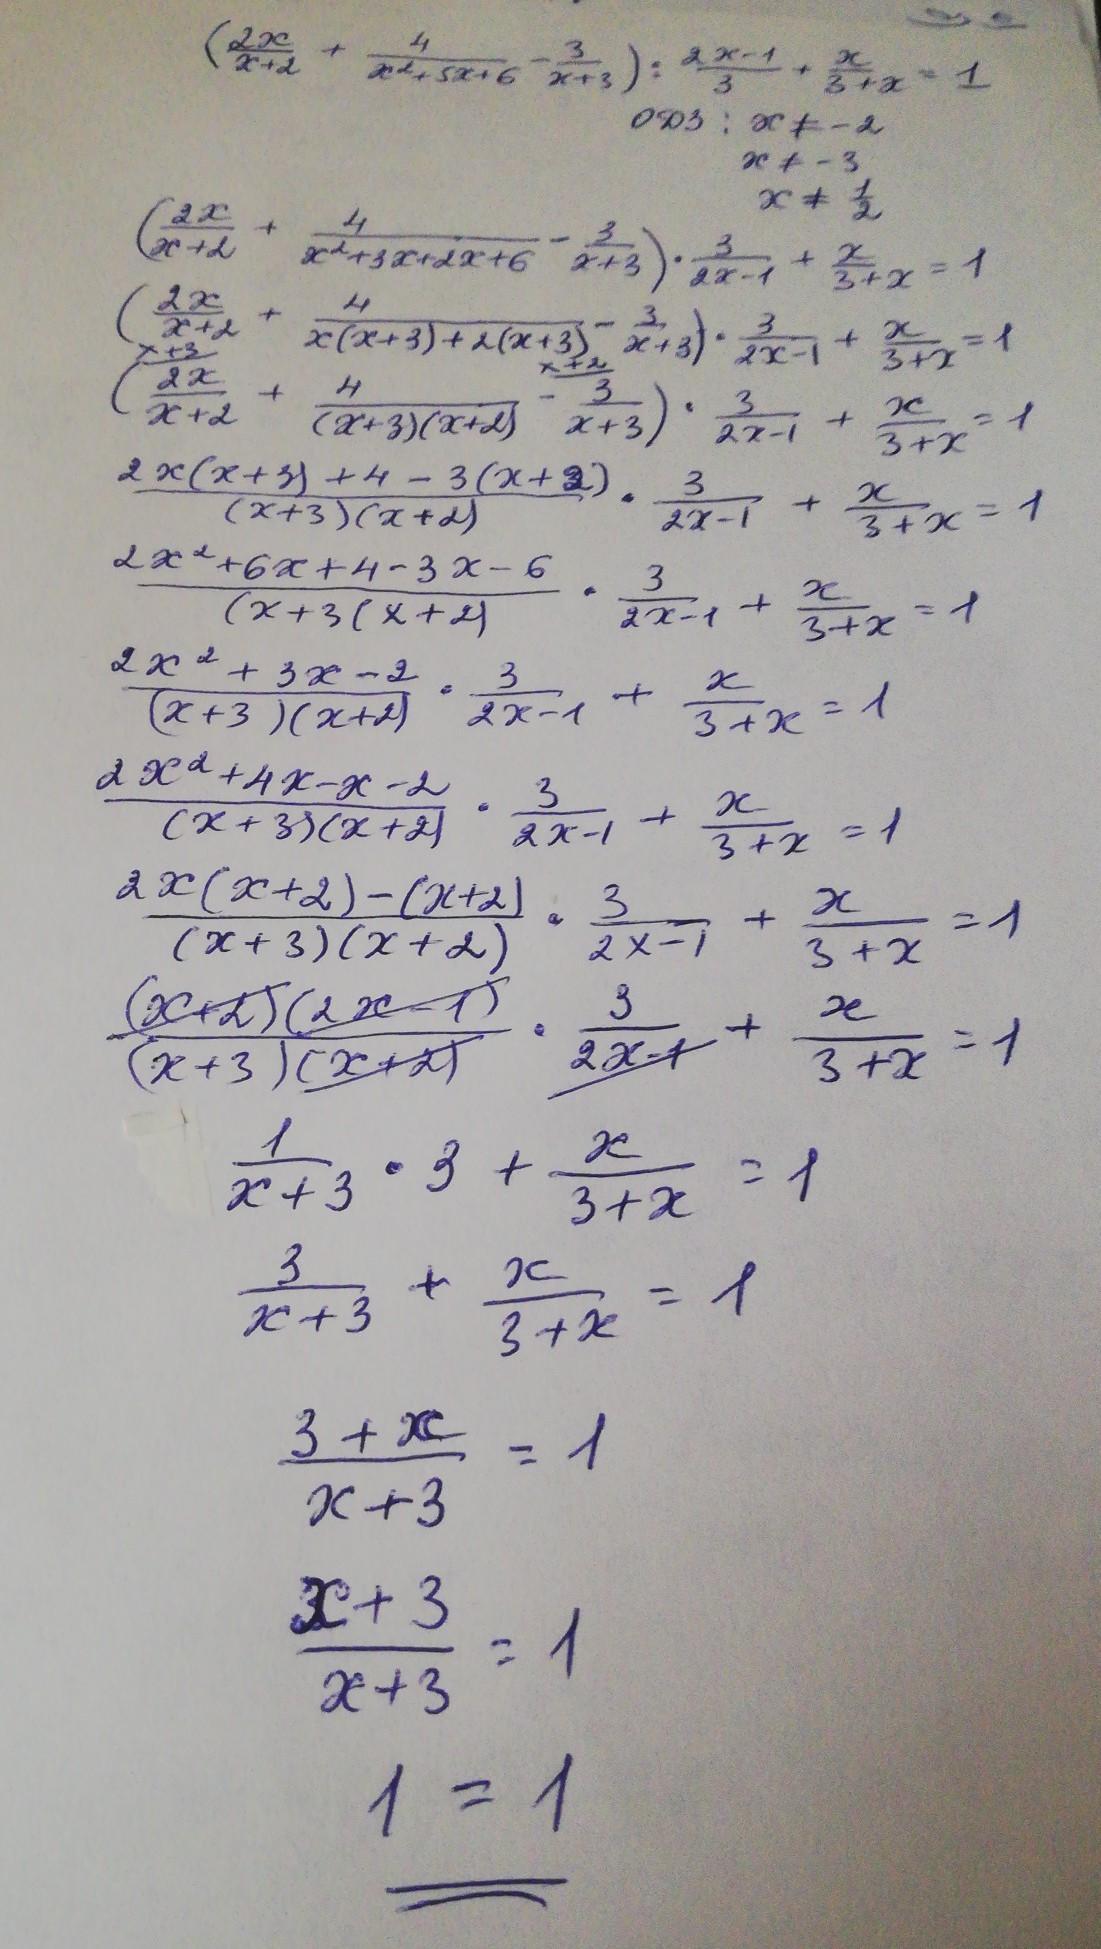 (2x/(x+2) + 4/(x²+5x+6) - 3/(x+3)) : (2x-1)/3 + x/(3+x) = 1
ОДЗ : x ≠ -2
x ≠ -3
x ≠ 1/2
(2x/(x+2) + 4/(x²+3x+2x+6) - 3/(x+3)) · 3/(2x-1) + x/(3+x) = 1
(2x/(x+2) + 4/(x(x+3)+2(x+3)) - 3/(x+3)) · 3/(2x-1) + x/(3+x) = 1
x+3 x+2
(2x/(x+2) + 4/((x+3)(x+2)) - 3/(x+3)) · 3/(2x-1) + x/(3+x) = 1
(2x(x+3)+4-3(x+2))/((x+3)(x+2)) · 3/(2x-1) + x/(3+x) = 1
(2x²+6x+4-3x-6)/((x+3(x+2)) · 3/(2x-1) + x/(3+x) = 1
(2x²+3x-2)/((x+3)(x+2)) · 3/(2x-1) + x/(3+x) = 1
(2x²+4x-x-2)/((x+3)(x+2)) · 3/(2x-1) + x/(3+x) = 1
(2x(x+2)-(x+2))/((x+3)(x+2)) · 3/(2x-1) + x/(3+x) = 1
((x+2)(2x-1))/((x+3)(x+2)) · 3/(2x-1) + x/(3+x) = 1
1/(x+3) · 3 + x/(3+x) = 1
3/(x+3) + x/(3+x) = 1
(3+x)/(x+3) = 1
(x+3)/(x+3) = 1
1 = 1